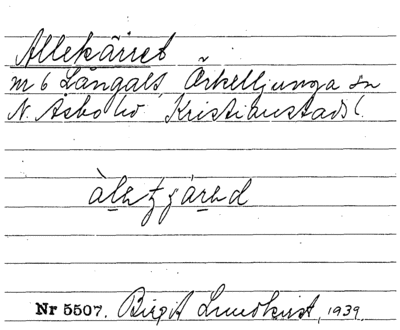 Allekärret
nr 6 Långalt, Örkelljunga sn
N. Åsbo hd. Kristianstads l.
àletjǥäred
Nr 5507. Birgit Lundkvist, 1939.